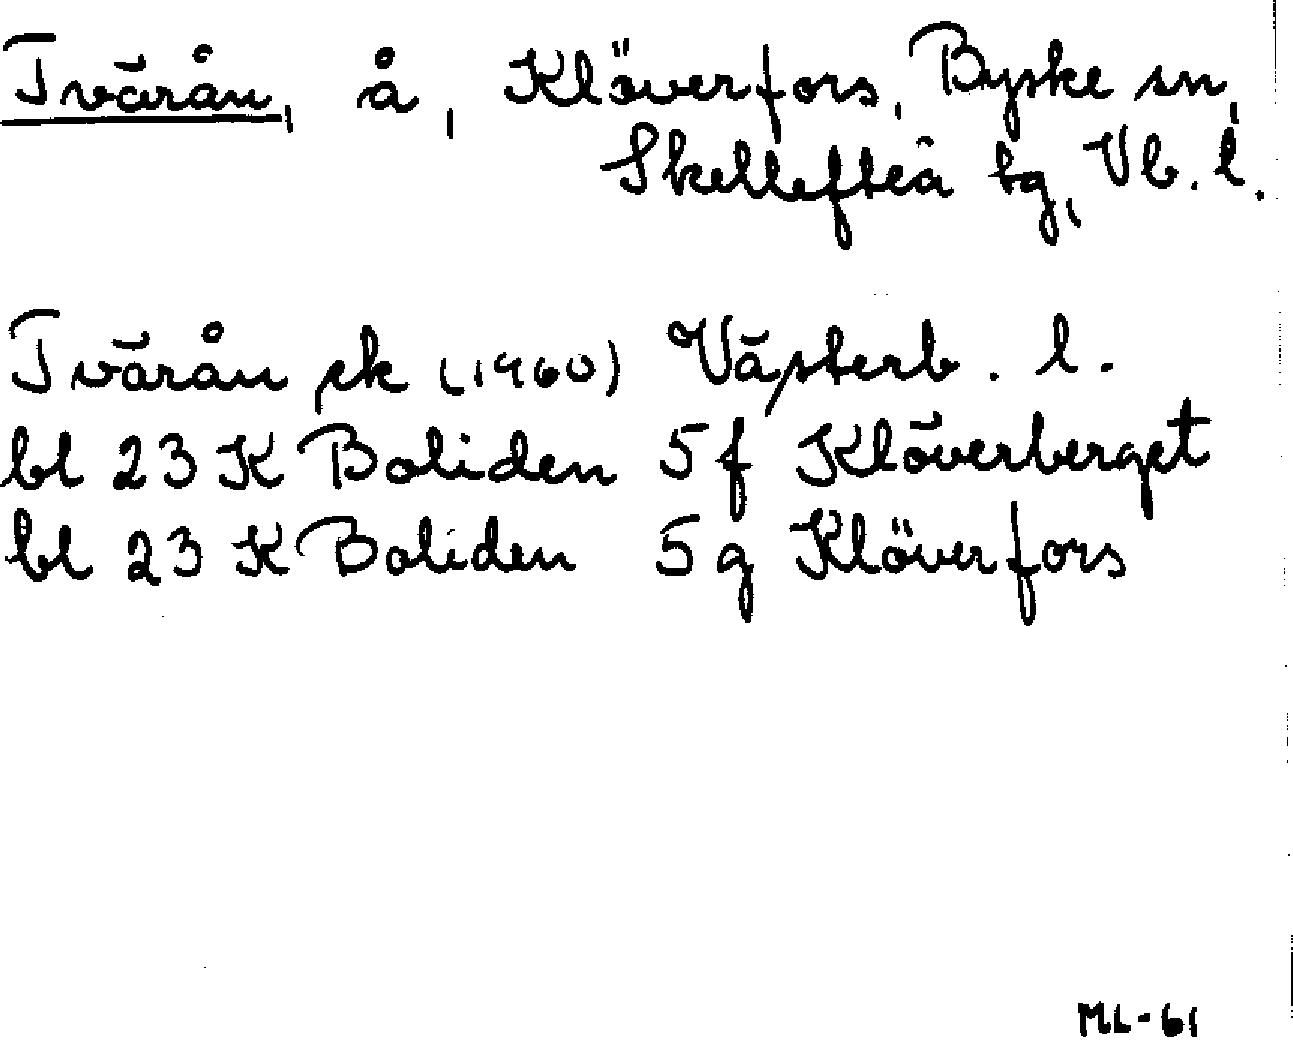 Tvärån, å, Klöverfors, Byske sn,
Skellefteå tg, Vb. l.
Tvärån ek (1960) Västerb. l.
bl 23 K Boliden 5 f Klöverberget
bl 23 K Boliden 5 g Klöverfors
ML-61